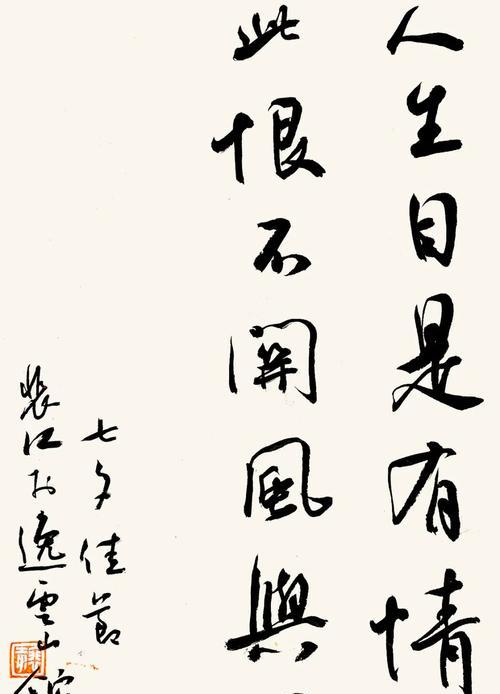 人生自是有情
此恨不關風與
七夕佳節
裴江於逸雲山